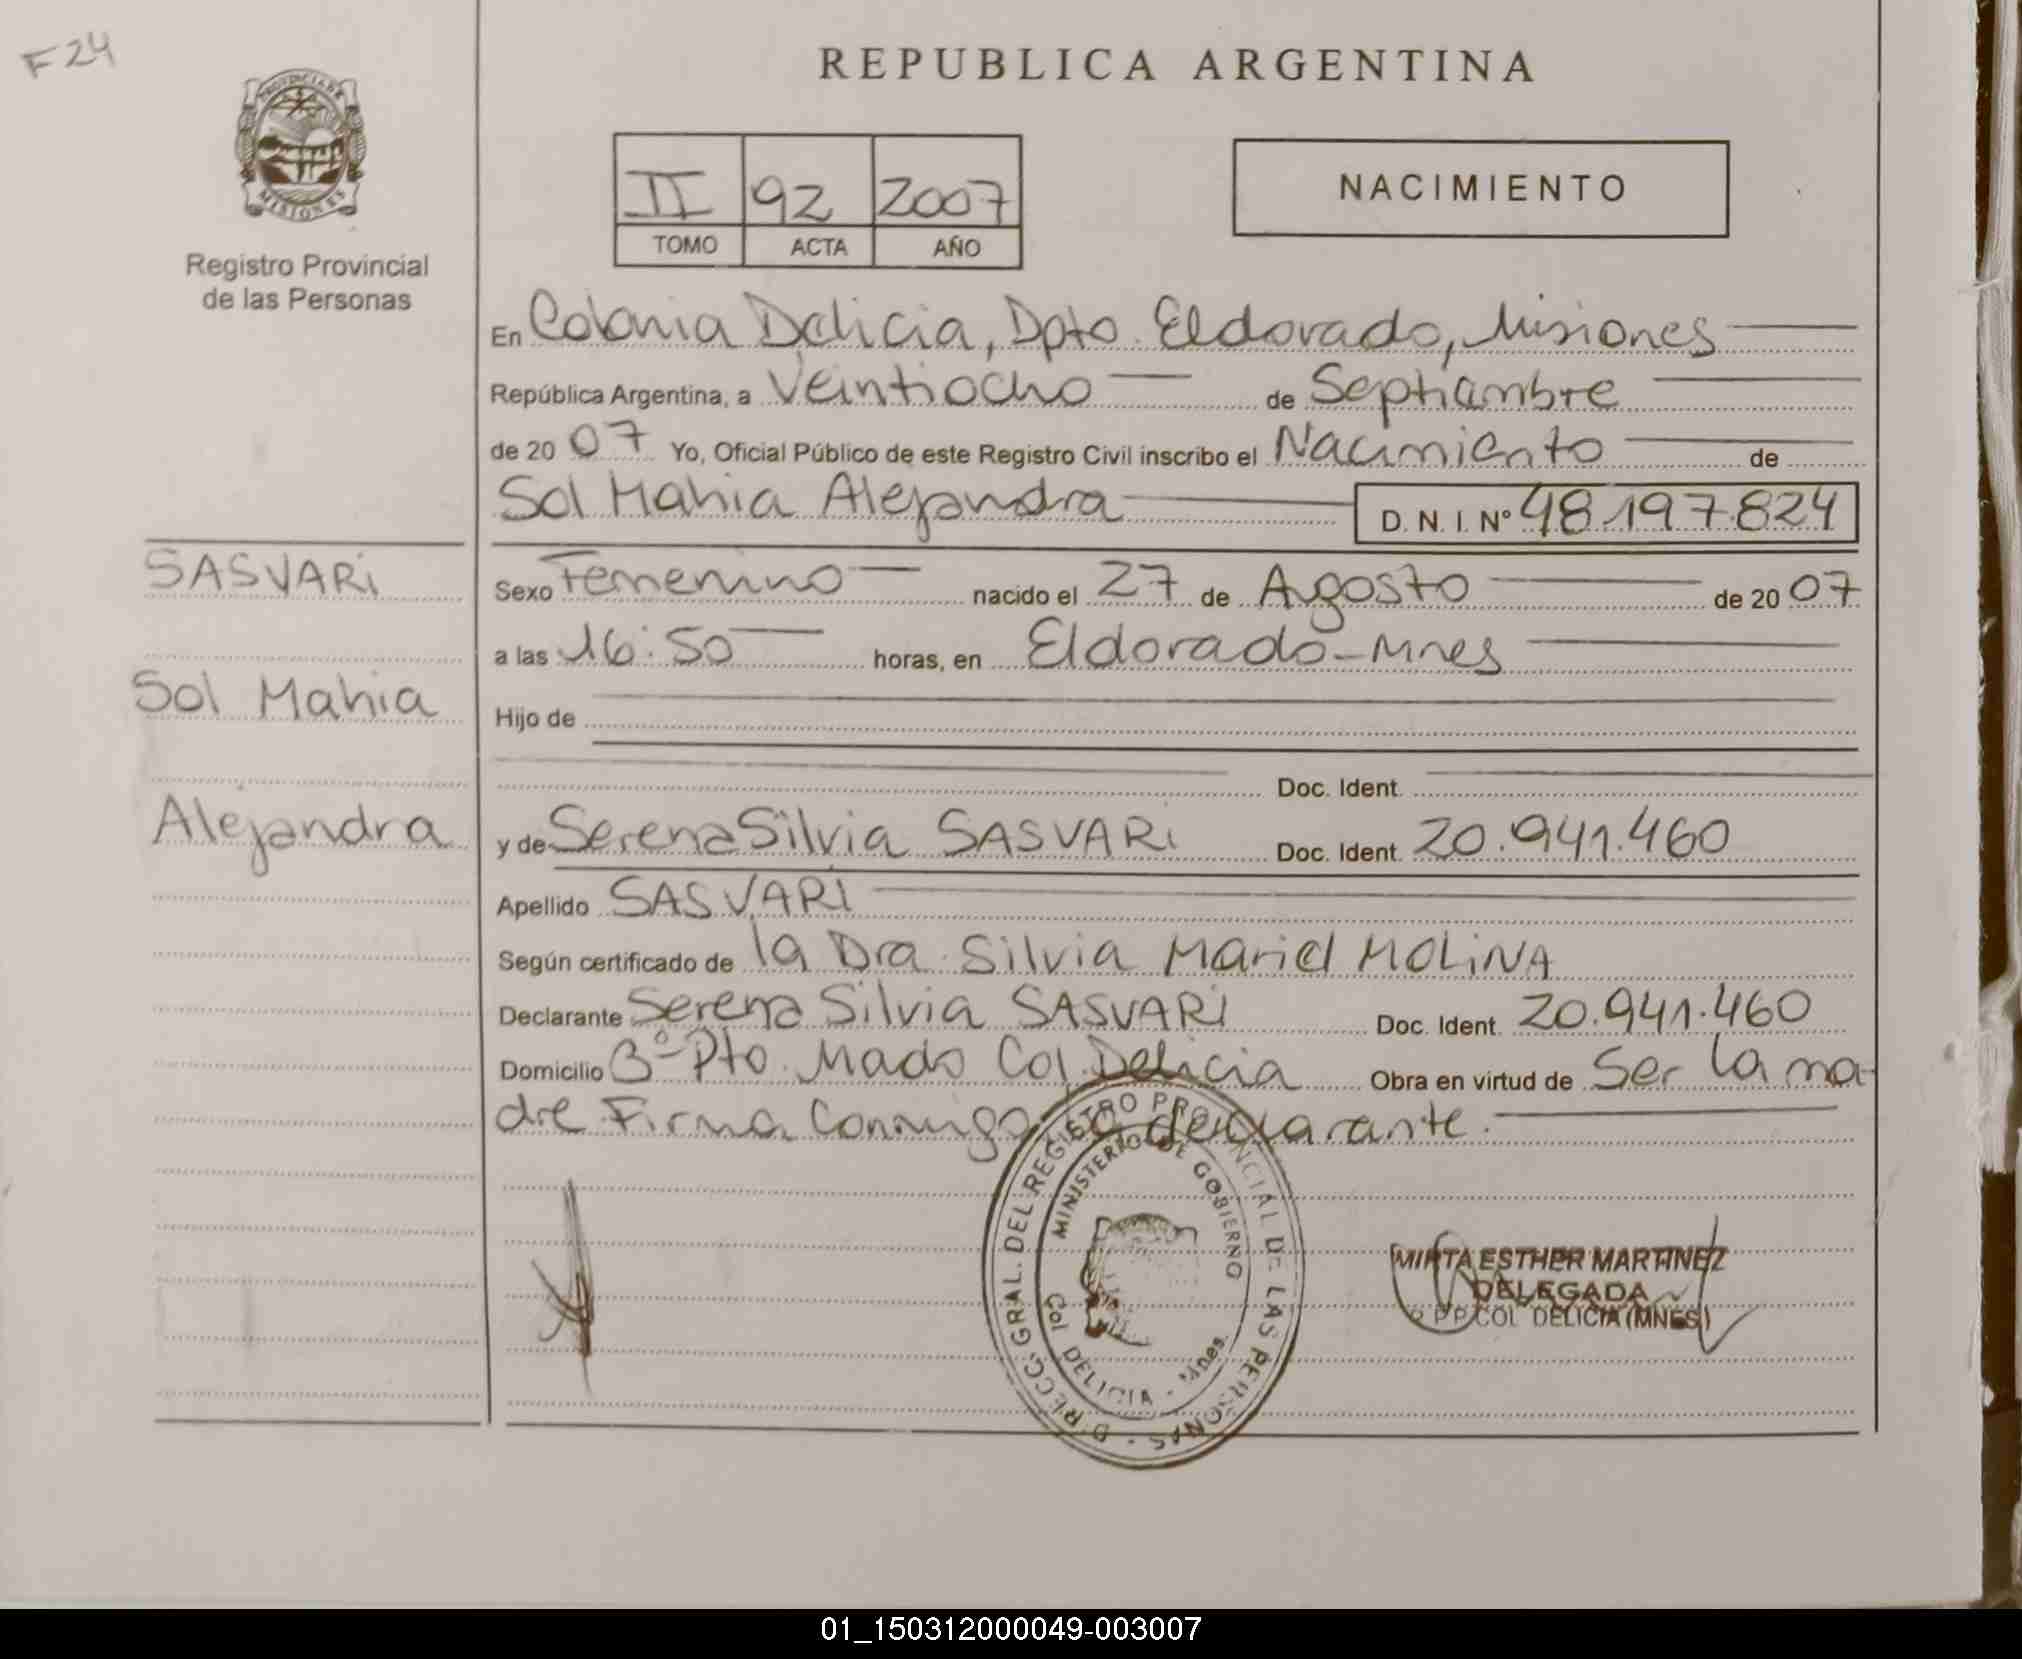 F24
REPUBLICA ARGENTINA
PROVINCIA DE
MISIONES
Registro Provincial
de las Personas
II 92 2007
TOMO ACTA AÑO
NACIMIENTO
En Colonia Delicia, Dpto. Eldorado, Misiones
República Argentina, a Veintiocho de Septiembre
de 20 07 Yo, Oficial Público de este Registro Civil inscribo el Nacimiento de
Sol Mahia Alejandra D. N. I. Nº 48.197.824
SASVARi
Sol Mahia
Alejandra
Sexo Femenino nacido el 27 de Agosto de 20 07
a las 16:50 horas, en Eldorado-Mnes
Hijo de
Doc. Ident.
y de Serena Silvia SASVARi Doc. Ident. 20.941.460
Apellido SASVARI
Según certificado de la Dra. Silvia Mariel MOLiNA
Declarante Serena Silvia SASVARI Doc. Ident. 20.941.460
Domicilio Bº Pto. Mado Col. Delicia Obra en virtud de Ser la ma-
dre. Firma Conmigo la declarante.
DIRECC. GRAL. DEL REGISTRO PROVINCIAL DE LAS PERSONAS
MINISTERIO DE GOBIERNO
Col DELICIA - Mnes.
MIRTA ESTHER MARTINEZ
DELEGADA
COL DELICIA (MNES)
01_150312000049-003007